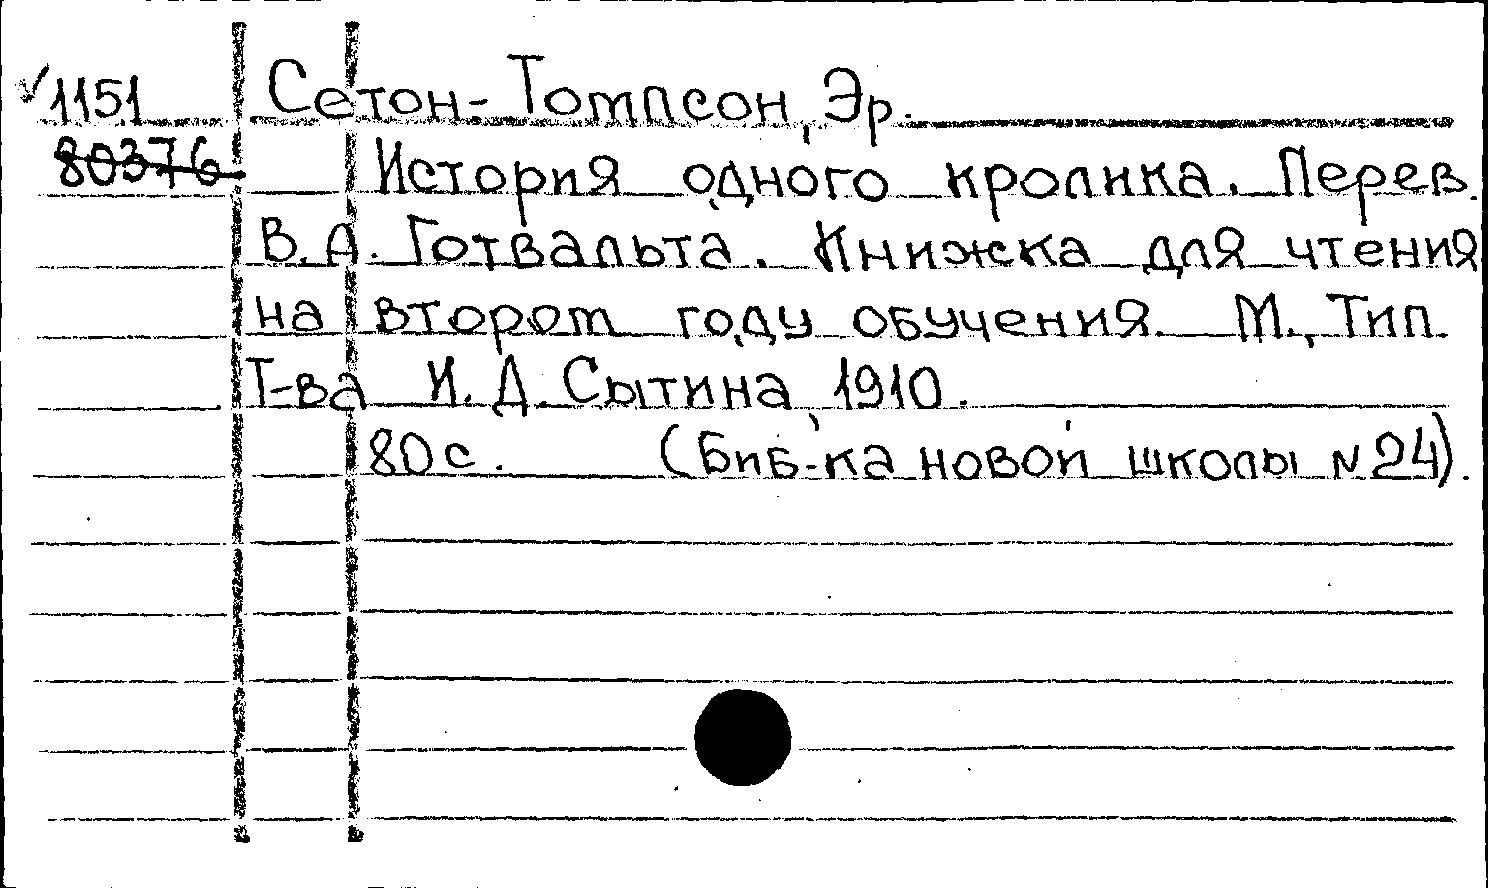 ✓1151 Сетон-Томпсон, Эр.
80376 История одного кролика. Перев.
В.А. Готвальта. Книжка для чтения
на втором году обучения. М., Тип.
Т-ва И.Д. Сытина, 1910.
80с. (Биб-ка новой школы N24).